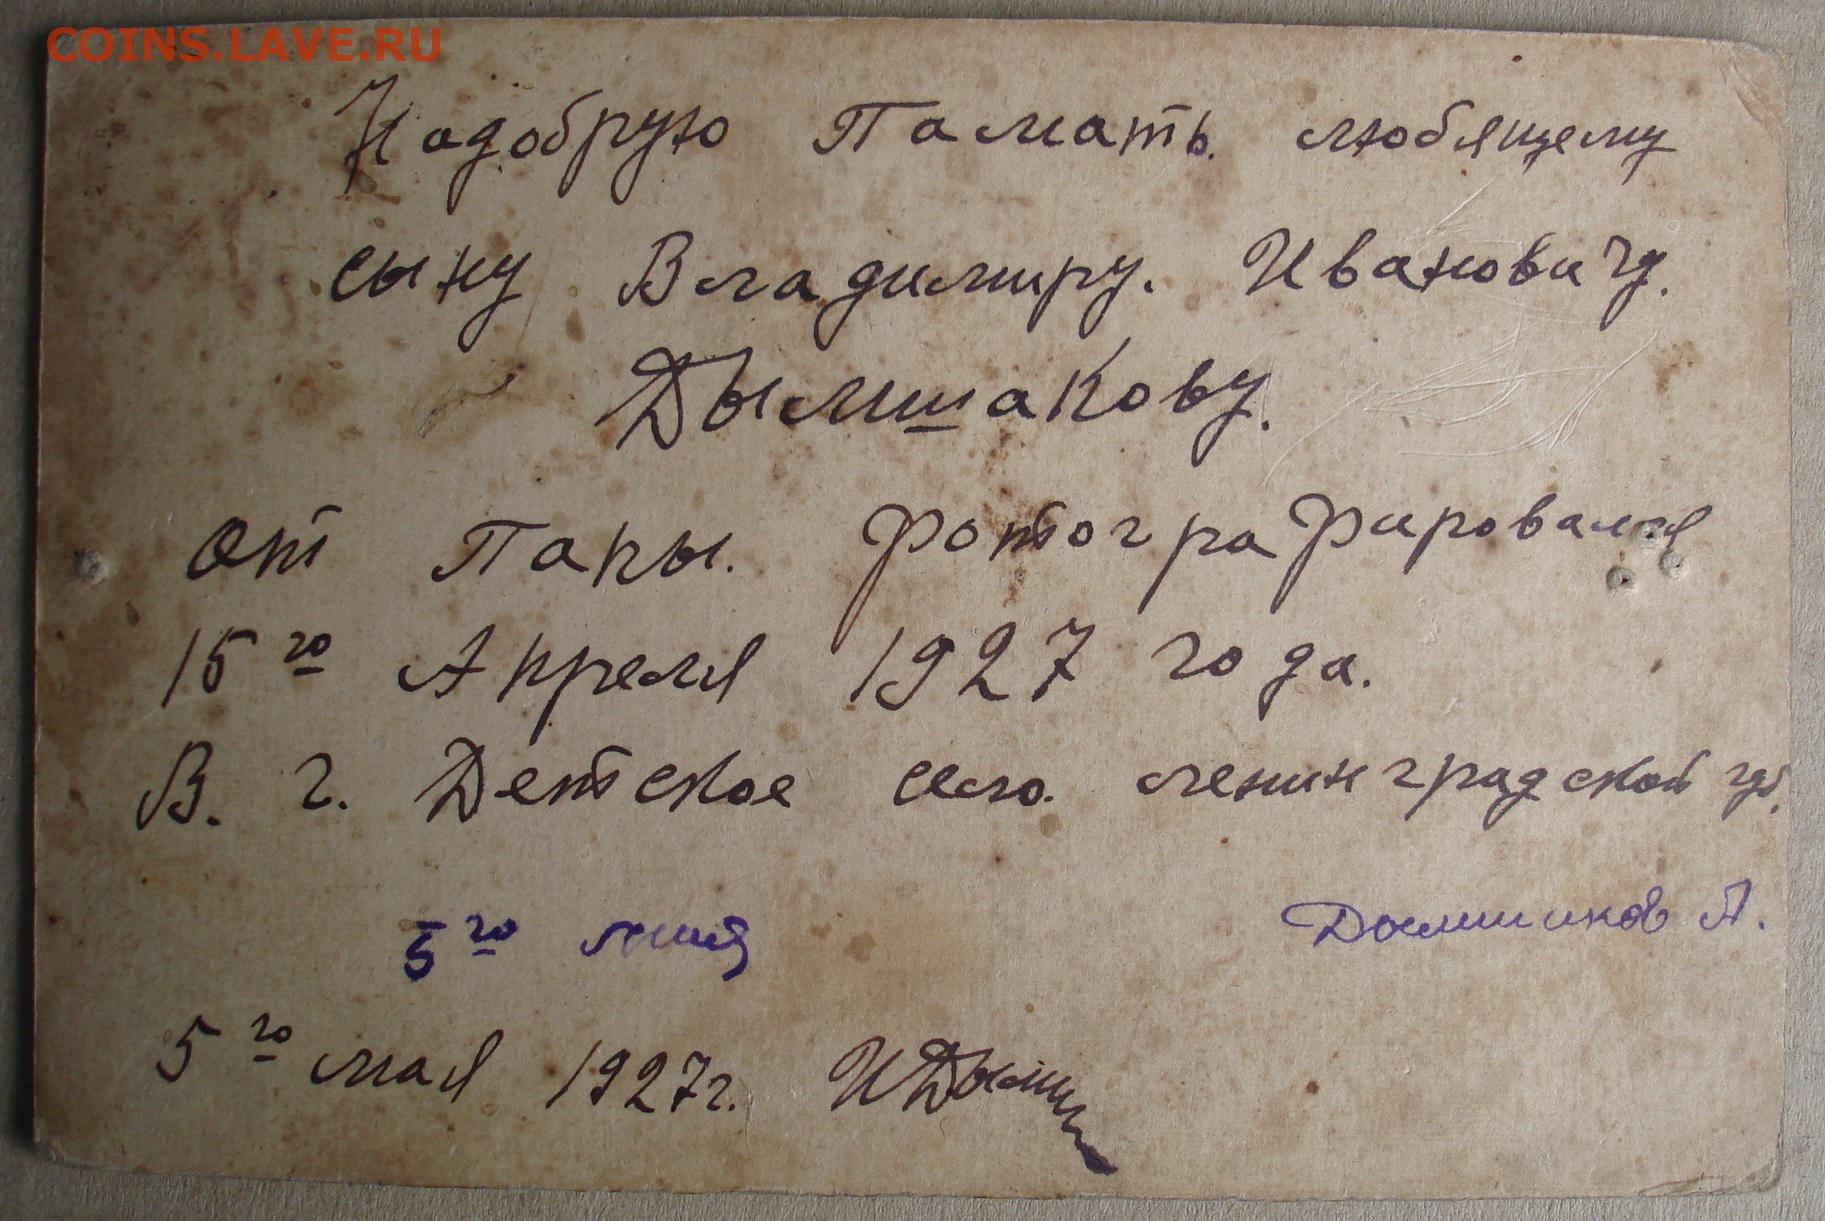 COINS.LAVE.RU
Надобрую Память. любящему
сыну Владимиру. Ивановичу.
Дымшакову.
от Папы. Фотографировался
15го Апреля 1927 года.
В. г. Детское село. ленинградской губ.
5го
Дымшаков А.
5го мая 1927г. ИДымш